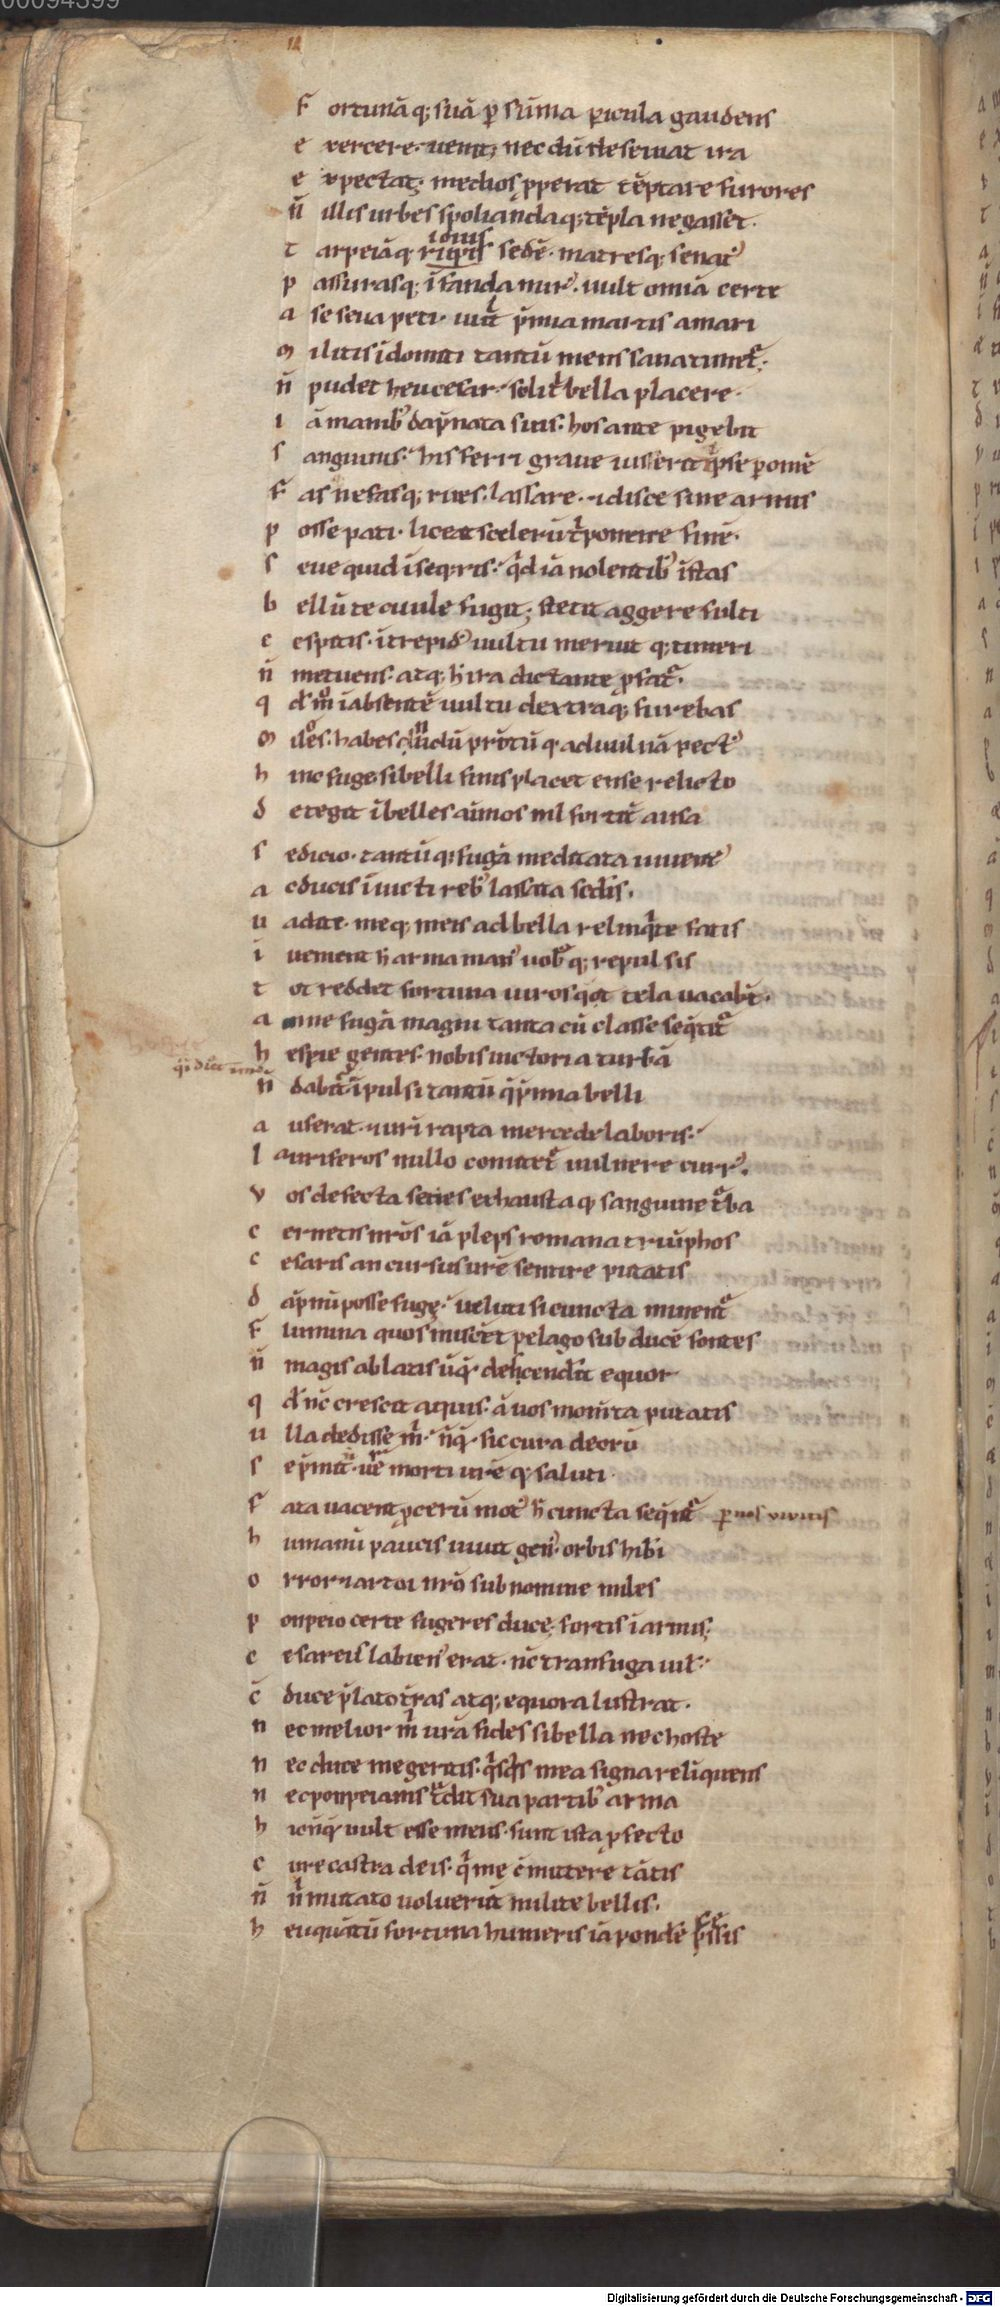 F ortunāq; suā ꝑ sūma pericula gaudens
e xercere. uenit; nec dū deseruiat ira
e xpectat; medios ꝓperat tēptare furores
n̄ illis urbes spoliandaq; tēpla negasset.
iouis
t arpeiāq; sedē. matresq; senat᾽
p assurasq; īfanda nur᾽. uult omīa certe
a se seua peti. p̄mia martis amari
m ilitis īdomiti tantū mens sana timet᷑;
n̄ pudet heu cesar. solit᷑ bella placere.
i ā manib᾽ dāpnata tuis. hos ante pigebit
s anguinis. his ferri graue ius erit ipse ꝑ omē
F as nefasq; rues. lassare. ⁊ disce sine armis
p osse pati. liceat scelerū t᷑ponere finē.
s eue quid īseq͛ris. qͥd iā nolentib᾽ īstas
b ellū te ciuile fugit; stetit aggere fulti
c espitis. ītrepid᾽ uultu meruitq; timeri
n̄ metuens. atq; h̄ ira dictante ꝓfat᷑.
q d̵ m̊ īabsentē uultu dextraq; furebas
m iles. habes nudū prōtūq; ad uulnā pect᾽
h inc fuge si belli finis placet ense relicto
d etegit ībelles aīmos nīl fortit᷑ ausa
s edicio. tantūq; fugā meditata iuuent᾽
a c ducis īuicti reb᾽ lassata secdīs.
u adite. meq; meis ad bella relinqͥte fatis
ī uenient h̄ arma man᾽ uobisq; repulsis
t ot reddet fortuna uiros qͦt tela uacabt̄.
a nne fugā magni tanta cū classe seqͥt᷑
h esperie gentes. nobis uictoria turbā
n̄ dabit᷑ īpulsi tantū q̄ p̄mia belli
a uferat. ⁊ uri rapta mercede laboris.
l auriferos nullo comitet᷑ uulnere curr᾽.
v os defecta senes exhaustaq; sanguine t᷑ba
c ernetis nrōs iā pleps romana triūphos
c esaris an cursus urē sentire putatis
d āpnū posse fugę. ueluti si cuncta minent᷑
F lumina quos miscet pelago subducē fontes
n̄ magis ablatis ūq͛ descenderit equor
q d̵ nc̄ crescit aquis. ā uos momīta putatis
u lla dedisse m̄. nūq͛ sic cura deorū
s e p̄mit. ut᷑ morti urēq; saluti.
F ata uacent ꝓcerū mot᾽ h̄ cuncta seqͥnt᷑ ꝑ nos viuitis
h umanū paucis uiuit gen᾽. orbis hibi
o rror ⁊ artoi nrō sub nomine miles
p onpeio certe fugeres duce. fortis ī armis;
c esareis labien᾽ erat. nc̄ transfuga uil᾽
c̄ duce p̄lato t᷑ras atq; equora lustrat.
n ec melior m̄ urā fides si bella nec hoste
n ec duce me geritis. qͥsqͥs mea signa reliquens
n ec ponpeianis t᷑dit sua partib᾽ arma
h ic nūq͛ uult esse meus. sunt ista ꝓfecto
c ure castra deis. qͥ me cōmittere tātis
n̄ nͥ mutato uoluerūt milite bellis.
h eu quātū fortuna humeris iā pondē fessis
Digitalisierung gefördert durch die Deutsche Forschungsgemeinschaft - DFG